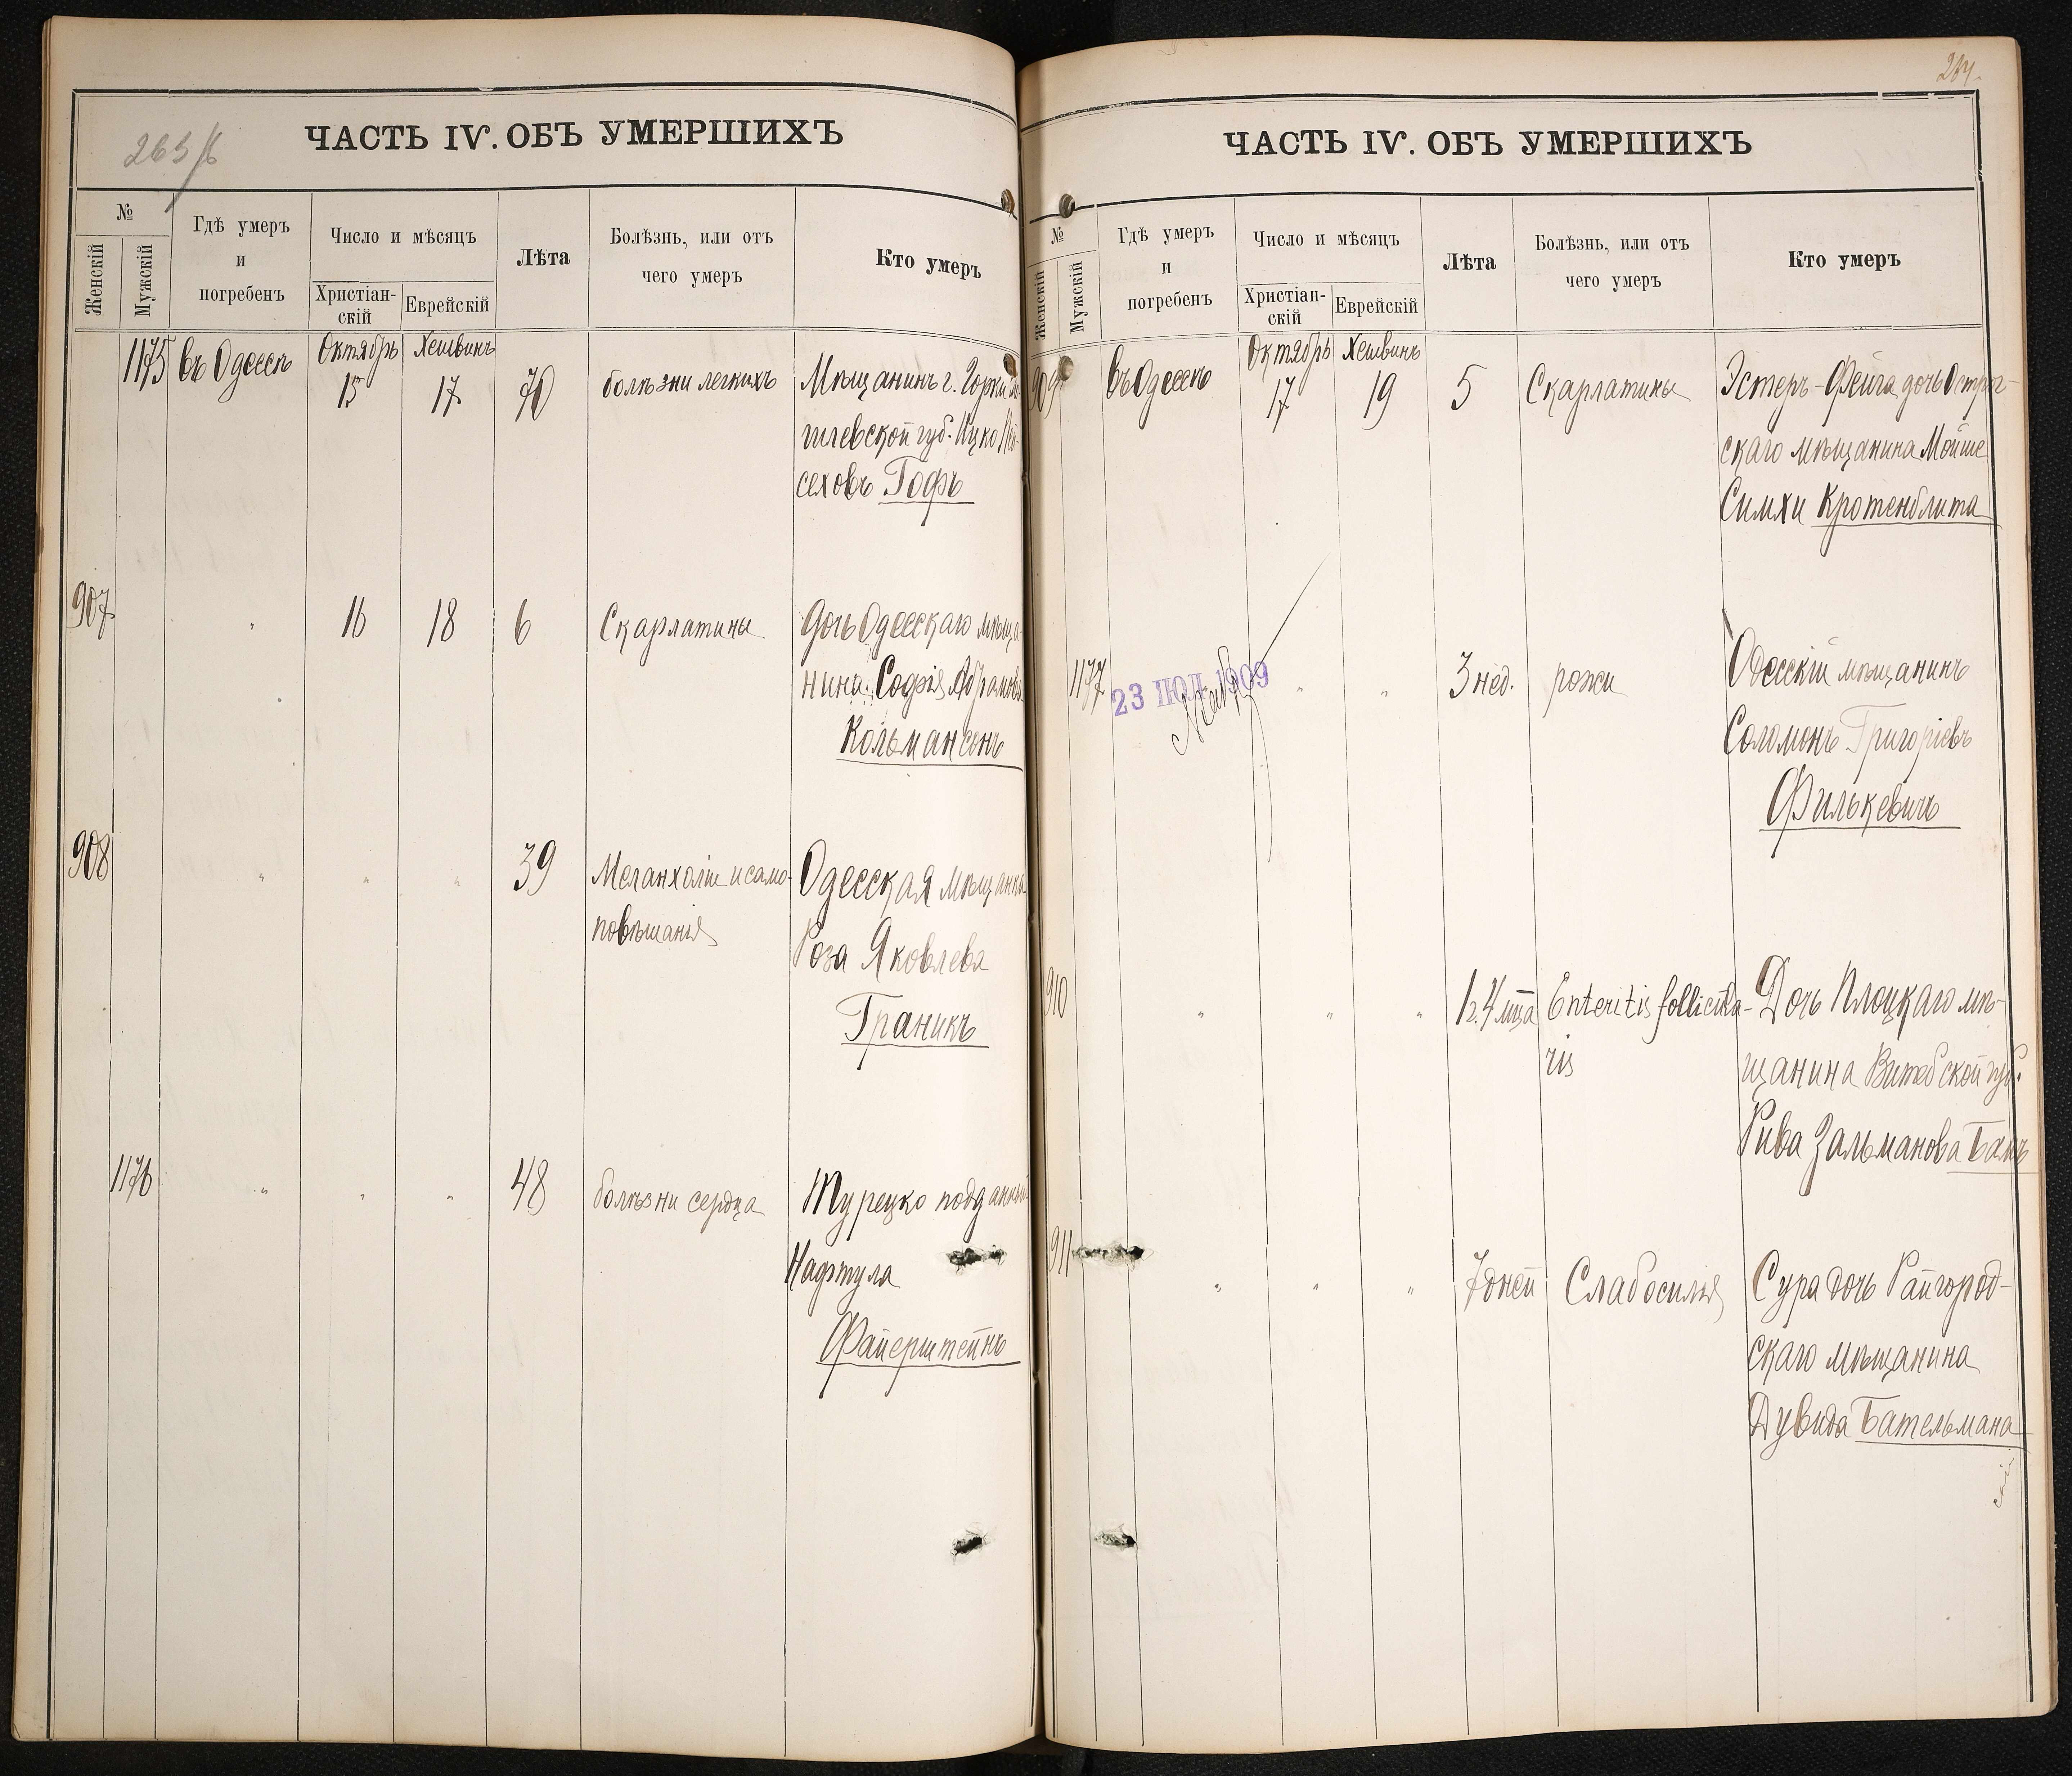 263/б
ЧАСТЬ IV. ОБЪ УМЕРШИХЪ
№
Женскій
Мужскій
Гдѣ умеръ
и
погребенъ
Число и мѣсяцъ
Христіан-
скій
Еврейскій
Лѣта
Болѣзнь, или отъ
чего умеръ
Кто умеръ
1175 въ Одессѣ Октябрь 15 Хешвинъ 17 70 болѣзни легкихъ Мѣщанинъ г. Горки
гилевской губ. Ицко
сеховъ Гофъ
907 " 16 18 6 Скарлатины Дочь Одесскаго мѣща-
нина Софія Абрамова
Кольмансонъ
908 " " " 39 Меланхоліи и само- Одесская мѣщанка
повѣшанія Роза Яковлева
Граникъ
1176 " " " 48 болѣзни сердца Турецко подданный
Нафтула
Файерштейнъ
264.
ЧАСТЬ IV. ОБЪ УМЕРШИХЪ
№
Женскій
Мужскій
Гдѣ умеръ
и
погребенъ
Число и мѣсяцъ
Христіан-
скій
Еврейскій
Лѣта
Болѣзнь, или отъ
чего умеръ
Кто умеръ
909 въ Одессѣ Октябрь 17 Хешвинъ 19 5 Скарлатины Эстеръ-Фейга дочь Острог-
скаго мѣщанина Мойше
Симхи Кротенблита
1177 23 ІЮЛ 1909 " " 3 нед. рожи Одесскій мѣщанинъ
Соломонъ Григоріевъ
Филькевичъ
910 " " " 1 г. 4 мца Enteritis follicula- Дочь Плоцкаго мѣ-
ris щанина Витебской губ.
Рива Зальманова Бамъ
911 " " " 7 дней Слабосилія Сура дочь Райгород-
скаго мѣщанина
Дувида Бательмана